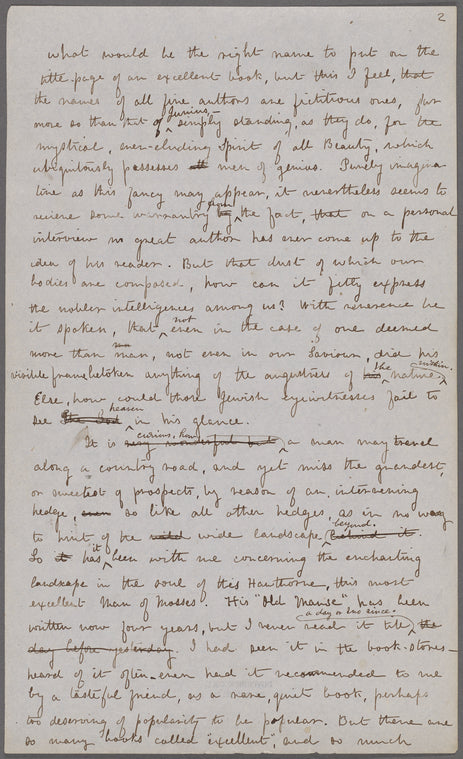 2
what would be the right name to put on the
title-page of an excellent book, but this I feel, that
the names of all fine authors are fictitious ones, far
Junius,
more so than that of simply standing, as they do, for the
mystical, ever-eluding Spirit of all Beauty, which
ubiquitously possesses men of genius. Purely imagina-
tive as this fancy may appear, it nevertheless seems to
from
receive some warranty by the fact, that on a personal
interview no great author has ever come up to the
idea of his reader. But that dust of which our
bodies are composed, how can it fitly express
the nobler intelligences among us? With reverence be
not
it spoken, that even in the case of one deemed
man
more than man, not even in our Saviour, did his
visible frame betoken anything of the augustness of his the nature within.
Else, how could those Jewish eyewitnesses fail to
heaven
see the God in his glance.
curious, how
It is very wonderful but a man may travel
along a country road, and yet miss the grandest,
or sweetest of prospects, by reason of an intervening
hedge, even so like all other hedges, as in no way
beyond.
to hint of the wide landscape behind it.
it
So it has been with me concerning the enchanting
landscape in the soul of this Hawthorne, this most
excellent Man of Mosses. His "Old Manse" has been
a day or two since.
written now four years, but I never read it till the
day before yesterday. I had seen it in the book-stores —
heard of it often — even had it recommended to me
by a tasteful friend, as a rare, quiet book, perhaps
too deserving of popularity to be popular. But there are
so many books called "excellent", and so much